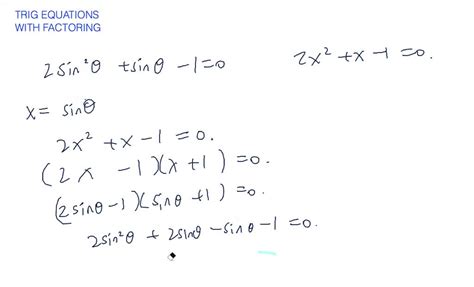 TRIG EQUATIONS
WITH FACTORING
2sin²θ + sinθ - 1 = 0
2x² + x - 1 = 0.
x = sinθ
2x² + x - 1 = 0.
(2x - 1)(x + 1) = 0.
(2sinθ - 1)(sinθ + 1) = 0.
2sin²θ + 2sinθ - sinθ - 1 = 0.